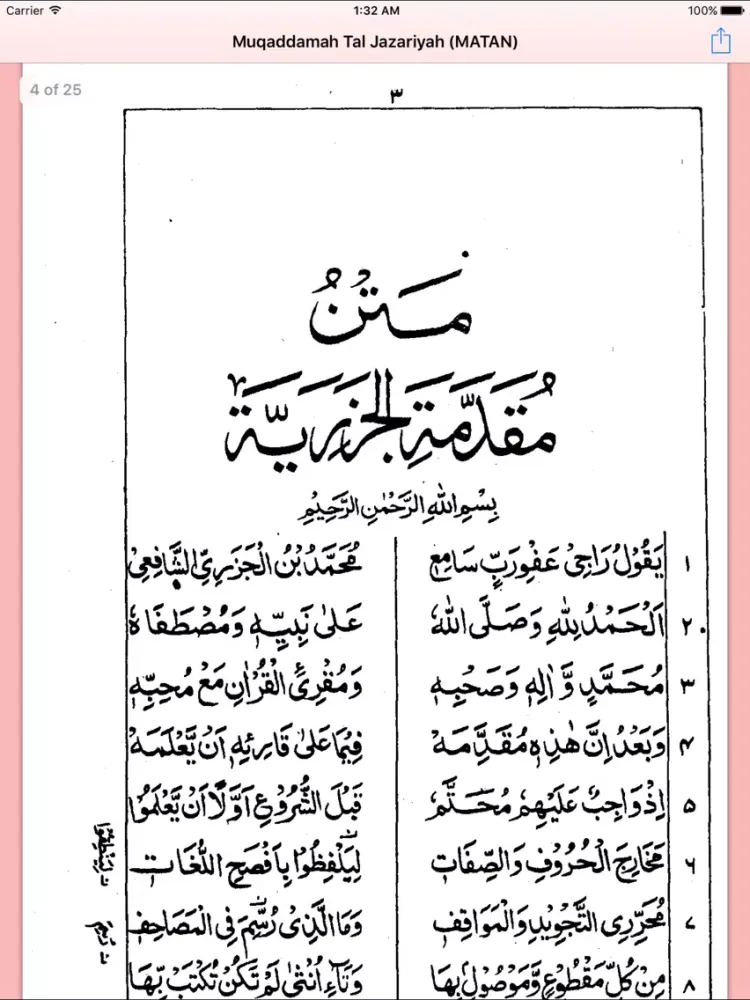 Carrier 1:32 AM 100%
Muqaddamah Tal Jazariyah (MATAN)
4 of 25
٣
مَتْنُ
مُقَدَّمَةِ الْجَزَرِيَّةِ
بِسْمِ اللّٰهِ الرَّحْمٰنِ الرَّحِيْمِ
١ يَقُوْلُ رَاجِيْ عَفْوِ رَبٍّ سَامِعٖ مُحَمَّدُ بْنُ الْجَزَرِيِّ الشَّافِعِيْ
٢ اَلْحَمْدُ لِلّٰهِ وَصَلَّى اللّٰهُ عَلٰى نَبِيِّهٖ وَمُصْطَفَاهُ
٣ مُحَمَّدٍ وَّاٰلِهٖ وَصَحْبِهٖ وَمُقْرِئِ الْقُرْاٰنِ مَعْ مُحِبِّهٖ
۴ وَبَعْدُ اِنَّ هٰذِهٖ مُقَدِّمَهْ فِيْمَا عَلٰى قَارِئِهٖ اَنْ يَّعْلَمَهْ
۵ اِذْ وَاجِبٌ عَلَيْهِمْ مُحَتَّمٗ قَبْلَ الشُّرُوْعِ اَوَّلًا اَنْ يَّعْلَمُوْا
۶ مَخَارِجَ الْحُرُوْفِ وَالصِّفَاتِ لِيَلْفِظُوْا بِاَفْصَحِ اللُّغَاتِ
ن لِيَنْطِقُوْا
۷ مُحَرِّرِى التَّجْوِيْدِ وَالْمَوَاقِفِ وَمَا الَّذِىْ رُسِّمَ فِى الْمَصَاحِفِ
۸ مِنْ كُلِّ مَقْطُوْعٍ وَّمَوْصُوْلٍ بِهَا وَتَآءِ اُنْثٰى لَمْ تَكُنْ تُكْتَبْ بِّهَا